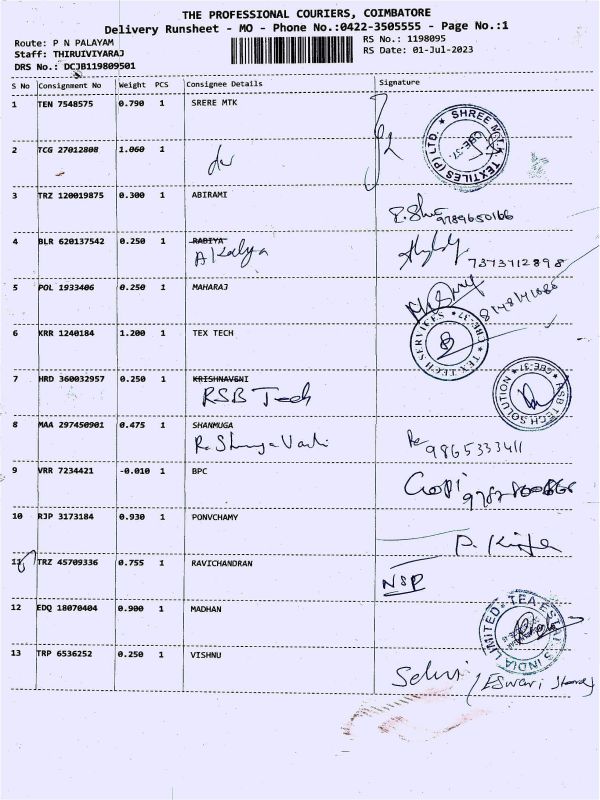 THE PROFESSIONAL COURIERS, COIMBATORE
Delivery Runsheet - MO - Phone No.:0422-3505555 - Page No.:1
Route: P N PALAYAM
RS No.: 1198095
Staff: THIRUIVIYARAJ
RS Date: 01-Jul-2023
DRS No.: DCJB119809501
S No Consignment No Weight PCS Consignee Details Signature
1 TEN 7548575 0.790 1 SRERE MTK
2 TCG 27012808 1.060 1
3 TRZ 120019875 0.300 1 ABIRAMI
9789650166
4 BLR 620137542 0.250 1 RABIYA
7373712898
5 POL 1933406 0.250 1 MAHARAJ
6 KRR 1240184 1.200 1 TEX TECH
TEX TECH SERVICES * CBE-37 *
7 HRD 360032957 0.250 1 KRISHNAVENI
RSB Tech
RSB TECH SOLUTION * CBE-37 *
8 MAA 297450901 0.475 1 SHANMUGA
9865333411
9 VRR 7234421 -0.010 1 BPC
Gopi
10 RJP 3173184 0.930 1 PONVCHAMY
11 TRZ 45709336 0.755 1 RAVICHANDRAN
NSP
12 EDQ 18070404 0.900 1 MADHAN
13 TRP 6536252 0.250 1 VISHNU
Selvi